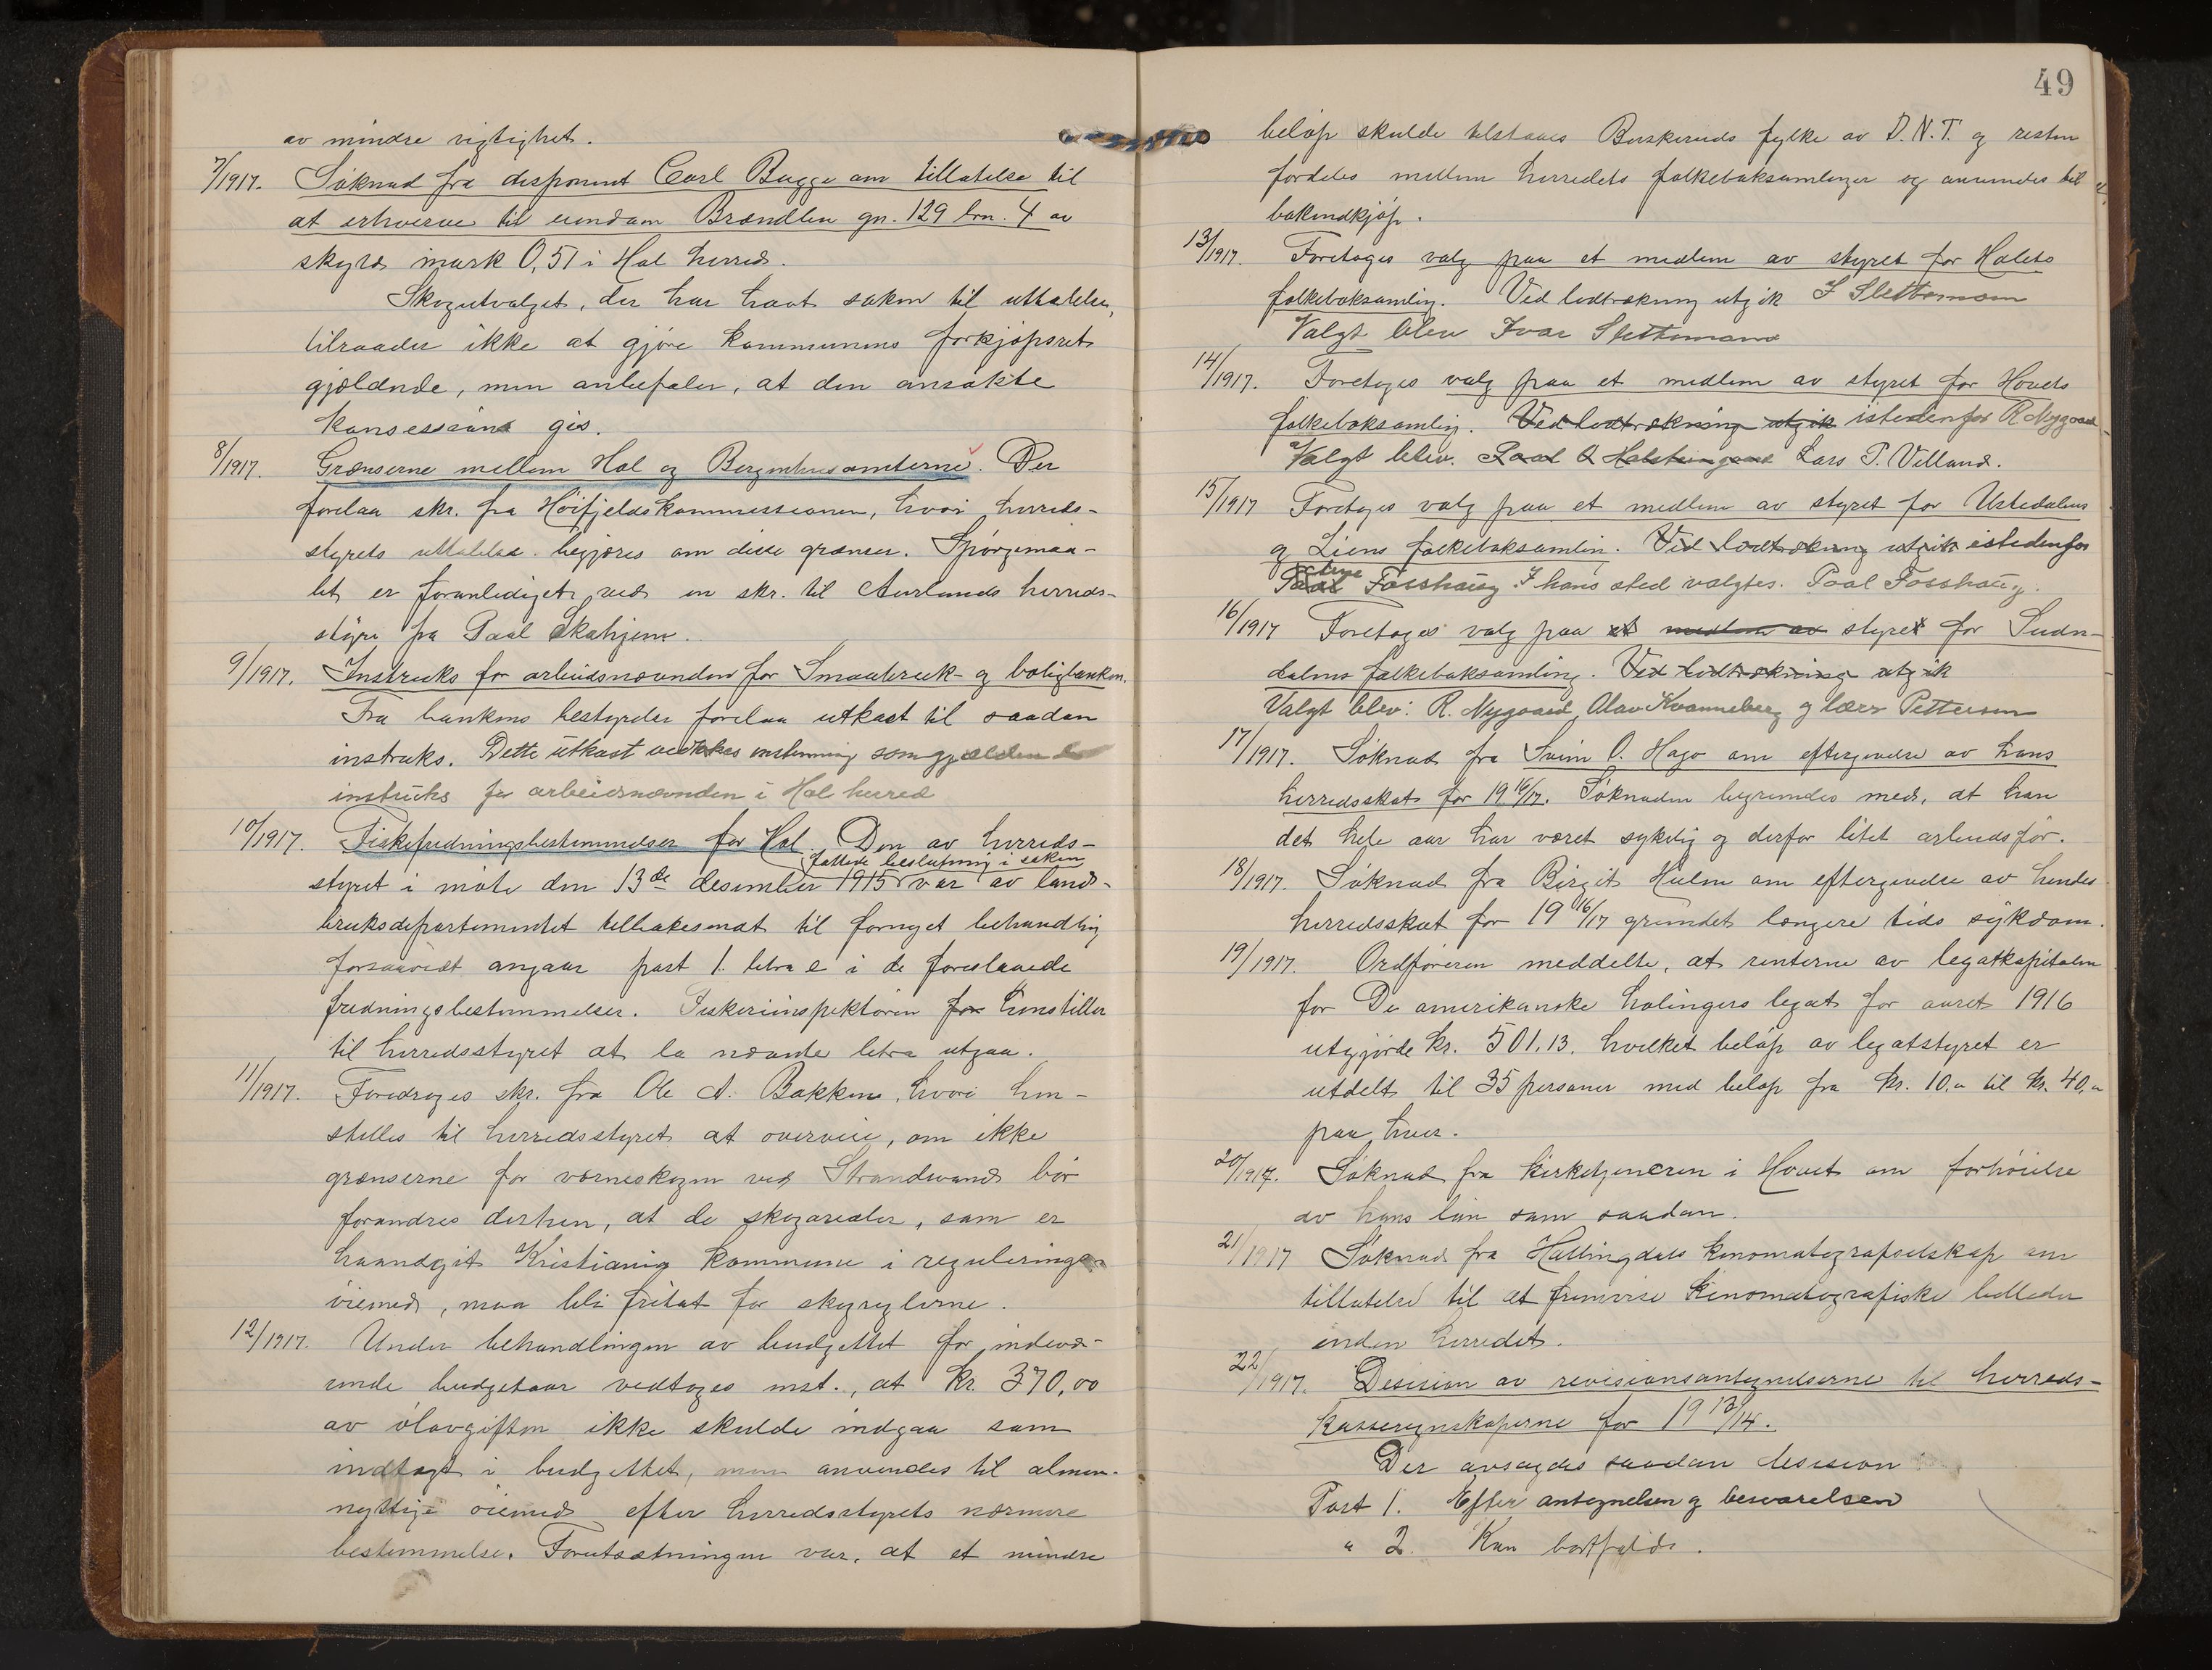 av mindre vigtighet.
7/1917. Søknad fra disponent Carl Bugge om tillatelse til
at erhverve til eiendom Brændlien gn. 129 brn. 4 av
skyld mark 0,51 i Hol herred.
Skogutvalget, der har havt saken til uttalelse,
tilraader ikke at gjøre kommunens forkjøpsret
gjældende, men anbefaler, at den ansøkte
konsession gis.
8/1917. Grænserne mellem Hol og Bergenhusamterne. Der
forelaa skr. fra Høifjeldskommissionen, hvori herreds-
styrets uttalelse begjæres om disse grænser. Spørgsmaa-
let er foranlediget ved en skr. til Aurlands herreds-
styre fra Paal Skahjem.
9/1917. Instruks for arbeidsnævnden for Smaabruk- og boligbanken.
Fra bankens bestyrelse forelaa utkast til saadan
instruks. Dette utkast vedtokes enstemmig som gjældende
instruks for arbeidsnævnden i Hol herred
10/1917. Fiskefredningsbestemmelser for Hol. Den av herreds-
fattede beslutning i saken
styret i møte den 13de desember 1915 var av land-
bruksdepartementet tilbakesendt til fornyet behandling
forsaavidt angaar post 1. litra e i de foreslaaede
fredningsbestemmelser. Fiskeriinspektøren for henstiller
til herredsstyret at la nævnte litra utgaa.
11/1917. Foredroges skr. fra Ole A. Bakken, hvori hen-
stilles til herredsstyret at overveie, om ikke
grænserne for værneskogen ved Strandevand bør
forandres derhen, at de skogarealer, som er
haandgit Kristiania kommune i regulerings-
øiemed, maa bli fritat for skogreglerne.
12/1917. Under behandlingen av budgettet for indevæ-
rende budgetaar vedtoges enst., at kr. 370,00
av ølavgiften ikke skulde indgaa som
indtægt i budgettet, men anvendes til almen-
nyttige øiemed efter herredsstyrets nærmere
bestemmelse. Forutsætningen var, at et mindre
49
beløp skulde tilstaaes Buskeruds fylke av D.N.T. og resten
fordeles mellem herredets folkeboksamlinger og anvendes til
bokindkjøp.
13/1917. Foretoges valg paa et medlem av styret for Holets
folkeboksamling. Ved lodtrækning utgik I Slettemoen
Valgt blev Ivar Slettemoen
14/1917. Foretoges valg paa et medlem av styret for Hovets
folkeboksamling. Ved lodtrækning utgik istedenfor R Nygaard
Valgt blev. Paal O Holsteingaard Lars P. Villand.
15/1917 Foretoges valg paa et medlem av styret for Ustedalens
og Liens folkeboksamling. Ved lodtrækning utgik istedenfor
Paal Fosshaug I hans sted valgtes. Paal Fosshaug.
16/1917 Foretoges valg paa et medlem av styret for Sudn-
dalens folkeboksamling. Ved lodtrækning utgik
Valgt blev: R. Nygaard, Olav Kvanneberg og lærer Pettersen
17/1917. Søknad fra Svein O. Hago om eftergivelse av hans
herredsskat for 1916/17. Søknaden begrundes med, at han
det hele aar har været sykelig og derfor litet arbeidsfør.
18/1917. Søknad fra Birgit Hulm om eftergivelse av hendes
herredsskat for 1916/17 grundet længere tids sykdom.
19/1917. Ordføreren meddelte, at renterne av legatkapitalen
for De amerikanske halingers legat for aaret 1916
utgjorde kr. 501.13. hvilket beløp av legatstyret er
utdelt til 35 personer med beløp fra kr. 10,- til kr. 40,-
paa hver.
20/1917. Søknad fra kirketjeneren i Hovet om forhøielse
av hans løn som saadan.
21/1917 Søknad fra Hallingdals kinomatografselskap om
tillatelse til at fremvise kinomatografiske billeder
inden herredet.
22/1917. Desision av revisionsantegnelserne til herreds-
kasseregnskaperne for 1913/14.
Der avsagdes saadan desision
Post 1. Efter antegnelsen og besvarelsen
" 2. Kan bortfalde.